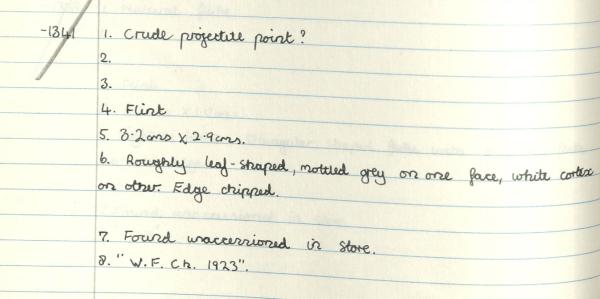 -1341 1. Crude projectile point?
2.
3.
4. Flint
5. 3.2cms x 2.9cms.
6. Roughly leaf-shaped, mottled grey on one face, white cortex
on other. Edge chipped.
7. Found unaccessioned in store.
8. "W.F. Ch. 1923".